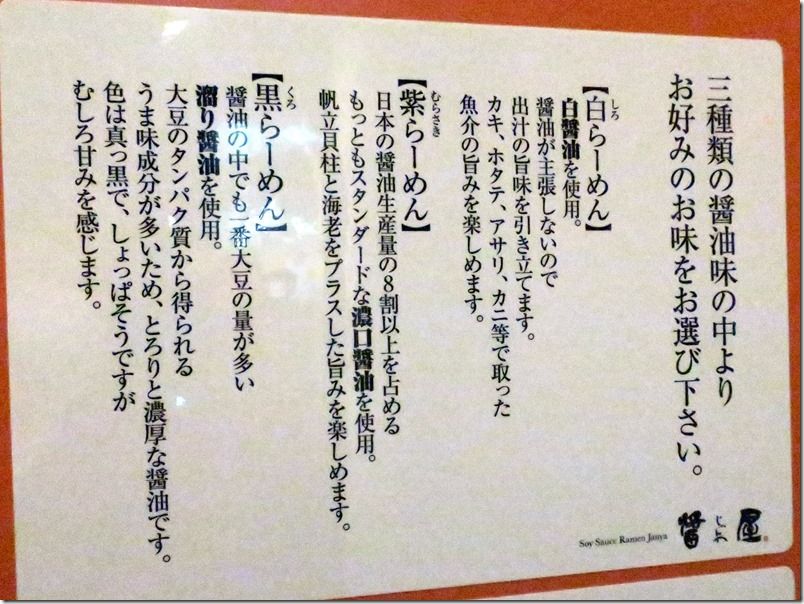 三種類の醤油味の中より
お好みのお味をお選び下さい。
【白らーめん】
しろ
白醤油を使用。
醤油が主張しないので
出汁の旨味を引き立てます。
カキ、ホタテ、アサリ、カニ等で取った
魚介の旨みを楽しめます。
【紫らーめん】
むらさき
日本の醤油生産量の8割以上を占める
もっともスタンダードな濃口醤油を使用。
帆立貝柱と海老をプラスした旨みを楽しめます。
【黒らーめん】
くろ
醤油の中でも一番大豆の量が多い
溜り醤油を使用。
大豆のタンパク質から得られる
うま味成分が多いため、とろりと濃厚な醤油です。
色は真っ黒で、しょっぱそうですが
むしろ甘みを感じます。
Soy Sauce Ramen Janya
醤じゃ屋